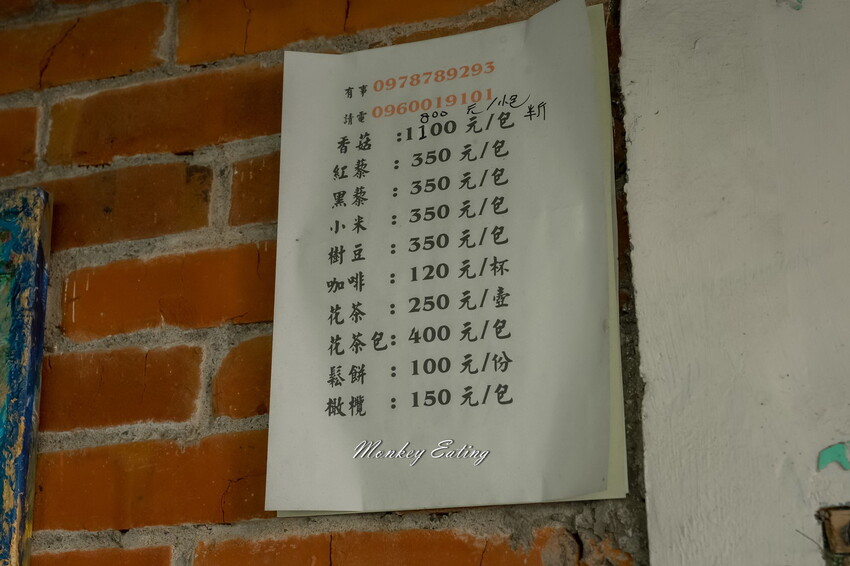 有事 0978789293
請電 0960019101
800 元/小包
香菇 :1100 元/包 半斤
紅藜 : 350 元/包
黑藜 : 350 元/包
小米 : 350 元/包
樹豆 : 350 元/包
咖啡 : 120 元/杯
花茶 : 250 元/壺
花茶包: 400 元/包
鬆餅 : 100 元/份
橄欖 : 150 元/包
Monkey Eating